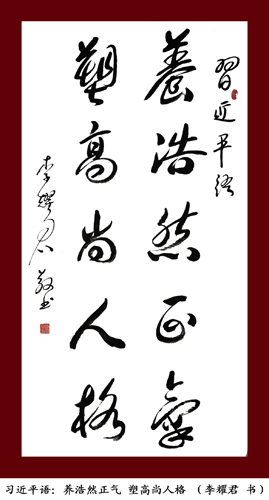 習近平語
養浩然正氣
塑高尚人格
李耀君敬书
习近平语：养浩然正气 塑高尚人格 （李耀君 书）